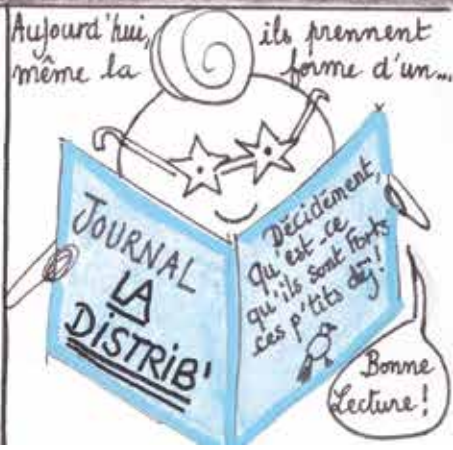 Aujourd'hui, ils prennent
même la forme d'un...
JOURNAL
LA
DISTRIB'
Décidément,
qu'est-ce
qu'ils sont forts
ces p'tits déj!
Bonne
Lecture!